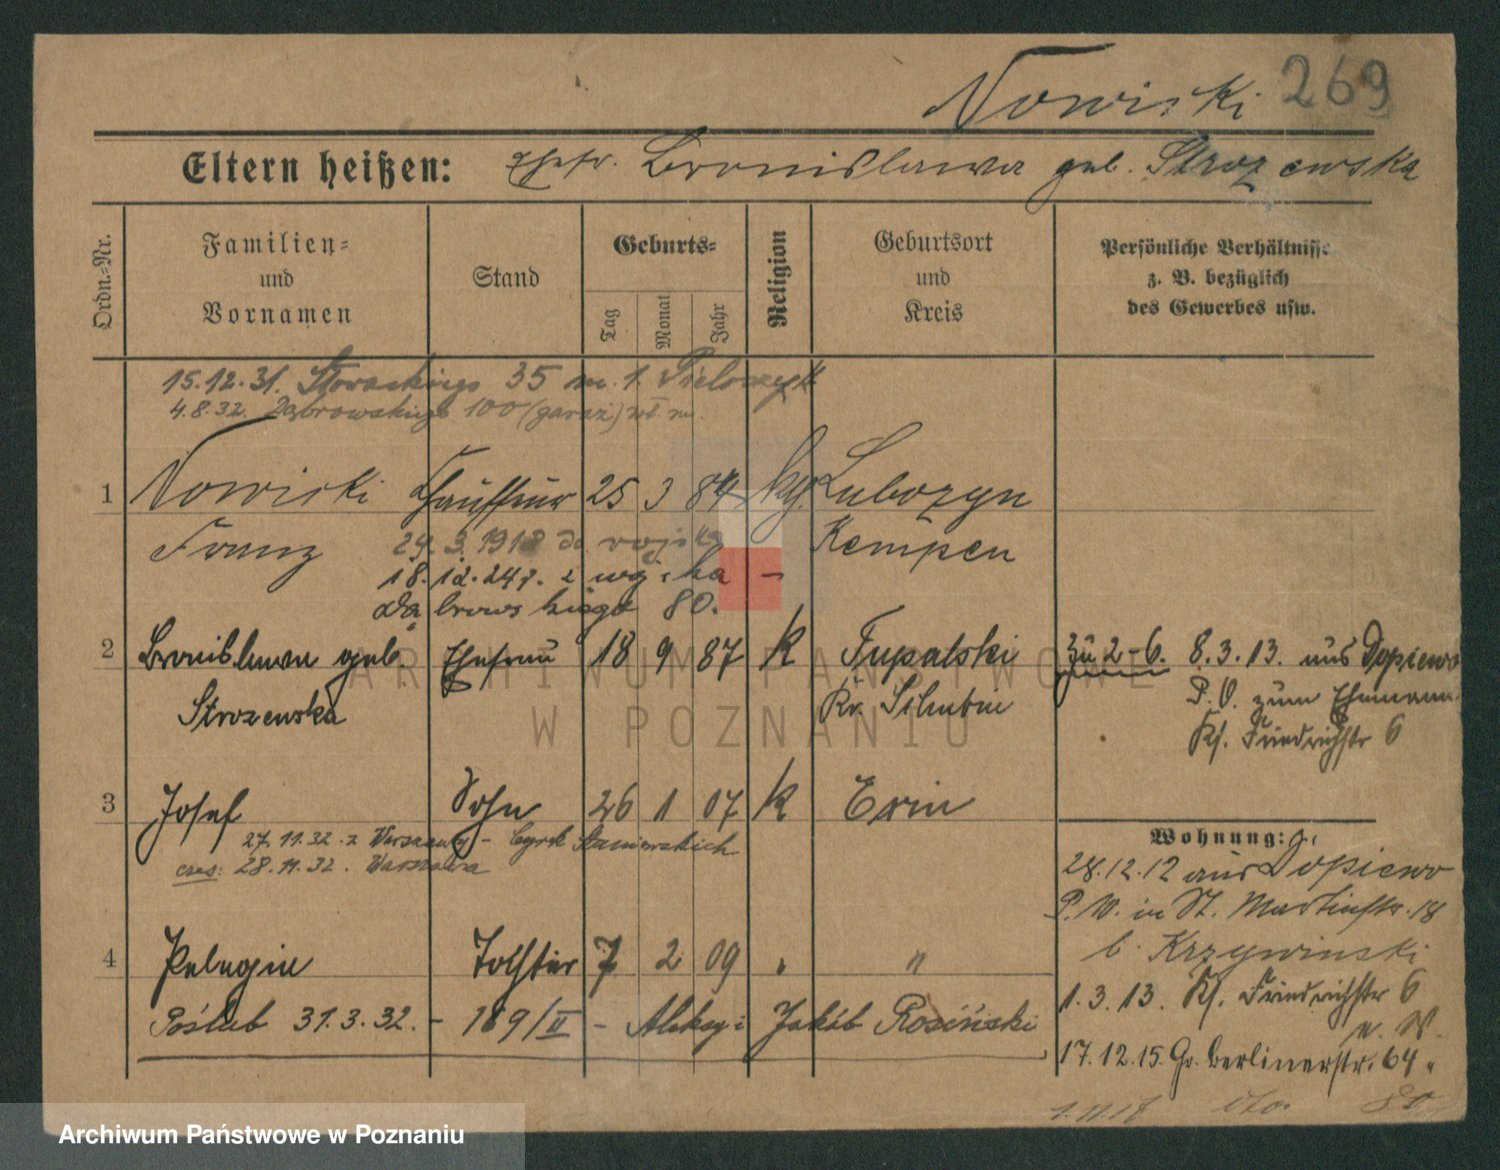 Nowicki 269
Eltern heißen: Ehefr. Bronislawa geb. Strozewska
Ordn.-Nr.
Familien= und Vornamen
Stand
Geburts=
Tag
Monat
Jahr
Religion
Geburtsort und Kreis
Persönliche Verhältnisse z. B. bezüglich des Gewerbes usw.
15.12.31. 35 m. 1.
4.8.32. Dąbrowskiego 100 (garaż) wł. m.
1 Nowicki Chauffeur 25 3 84 kg. Lubozyn
Franz 29.3.1918 do wojska Kempen
18.12.24 r. z wojska –
Dąbrowskiego 80.
2 Bronislawa geb. Ehefrau 18 9 87 k Tupalski zu 2-6. 8.3.13. aus Dopiewo
Strozewska Kr. Schubin P.V. zum Ehemann
Kf. Friedrichstr 6
3 Josef Sohn 26 1 07 k Exin
27.11.32. z Warszawy – Cyrk Staniewskich
czas: 28.11.32. Warszawa
Wohnung:
28.12.12 aus Dopiewo
P. W. in St. Martinstr. 18
b. Krzywinski
4 Pelagia Tochter 7 2 09 " "
1.3.13. Kf. Friedrichstr 6
Poślub 31.3.32. – 189/II – Aleksy i Jakób Rosiński
n. W.
17.12.15. Gr. Berlinerstr. 64.
1.11.17 dto. 80
ARCHIWUM PAŃSTWOWE
W POZNANIU
Archiwum Państwowe w Poznaniu